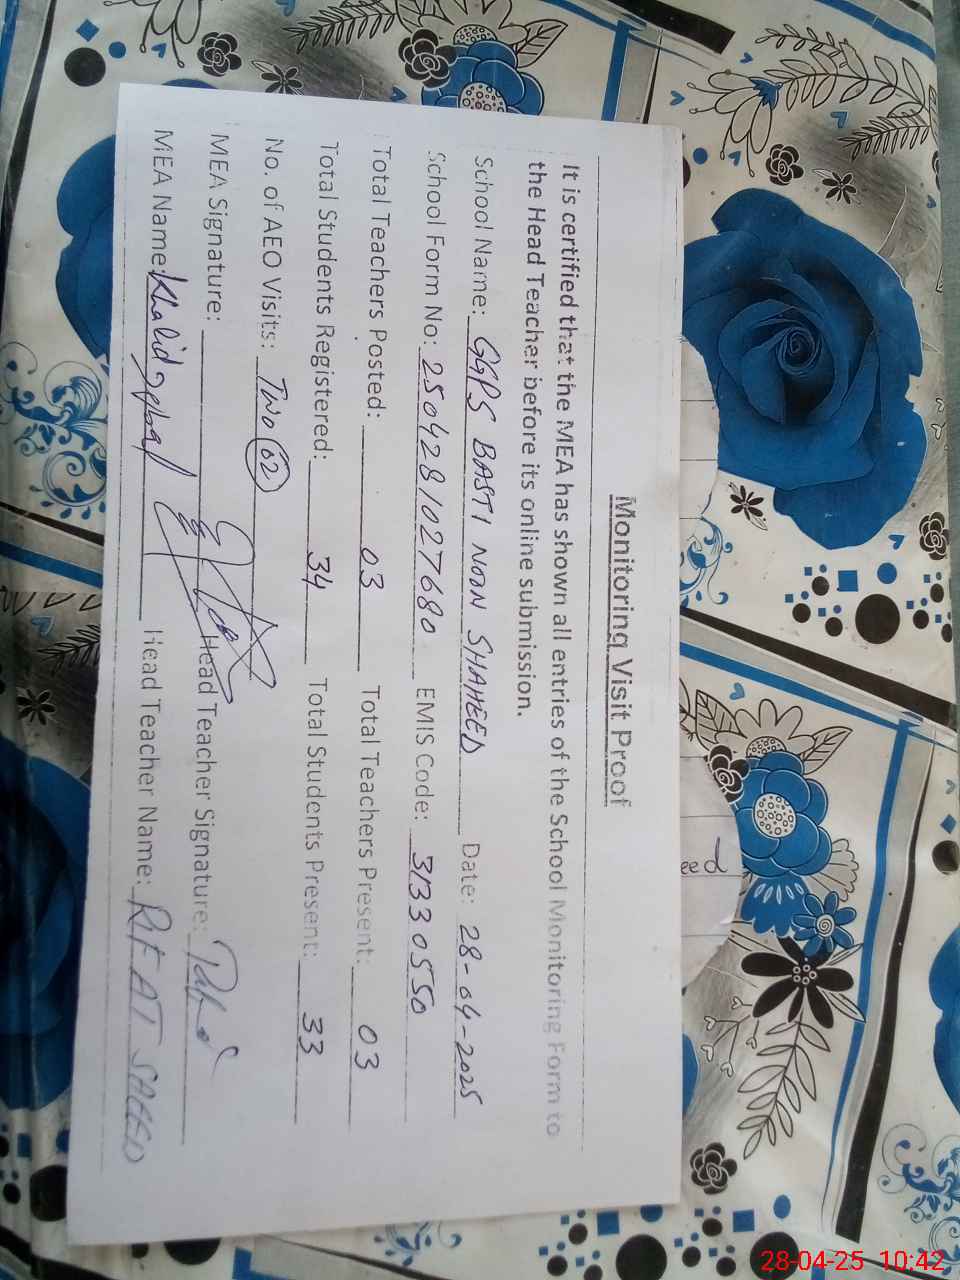 Monitoring Visit Proof
It is certified that the MEA has shown all entries of the School Monitoring Form to
the Head Teacher before its online submission.
School Name: GGPS BASTI NOON SHAHEED Date: 28-04-2025
School Form No: 2504281027680 EMIS Code: 31330550
Total Teachers Posted: 03 Total Teachers Present: 03
Total Students Registered: 34 Total Students Present: 33
No. of AEO Visits: Two 02
MEA Signature: Head Teacher Signature:
MEA Name: Khalid Iqbal Head Teacher Name: RIFAT SAEED
eed
28-04-25 10:42